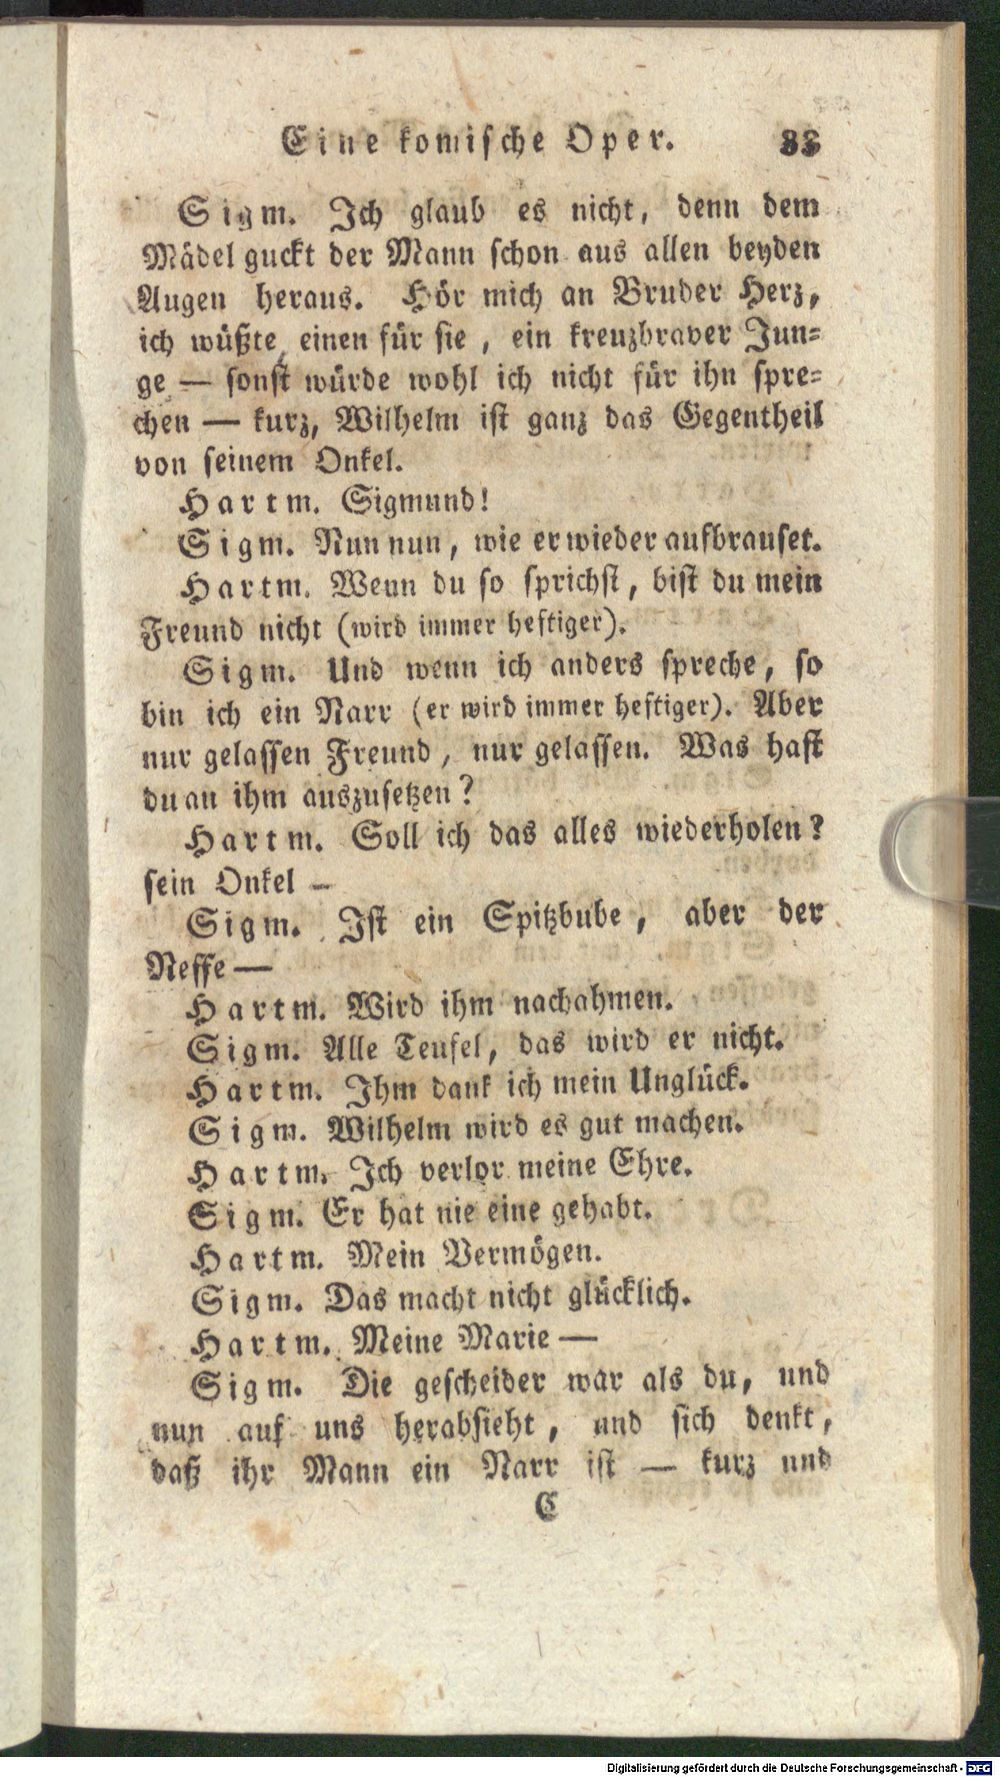 Eine komische Oper. 33
Sigm. Ich glaub es nicht, denn dem
Mädel guckt der Mann schon aus allen beyden
Augen heraus. Hör mich an Bruder Herz,
ich wüßte einen für sie, ein kreuzbraver Jun-
ge — sonst würde wohl ich nicht für ihn spre-
chen — kurz, Wilhelm ist ganz das Gegentheil
von seinem Onkel.
Hartm. Sigmund!
Sigm. Nun nun, wie er wieder aufbrauset.
Hartm. Wenn du so sprichst, bist du mein
Freund nicht (wird immer heftiger).
Sigm. Und wenn ich anders spreche, so
bin ich ein Narr (er wird immer heftiger). Aber
nur gelassen Freund, nur gelassen. Was hast
du an ihm auszusetzen?
Hartm. Soll ich das alles wiederholen?
sein Onkel —
Sigm. Ist ein Spitzbube, aber der
Neffe —
Hartm. Wird ihm nachahmen.
Sigm. Alle Teufel, das wird er nicht.
Hartm. Ihm dank ich mein Unglück.
Sigm. Wilhelm wird es gut machen.
Hartm. Ich verlor meine Ehre.
Sigm. Er hat nie eine gehabt.
Hartm. Mein Vermögen.
Sigm. Das macht nicht glücklich.
Hartm. Meine Marie —
Sigm. Die gescheider war als du, und
nun auf uns herabsieht, und sich denkt,
daß ihr Mann ein Narr ist — kurz und
C
Digitalisierung gefördert durch die Deutsche Forschungsgemeinschaft - DFG